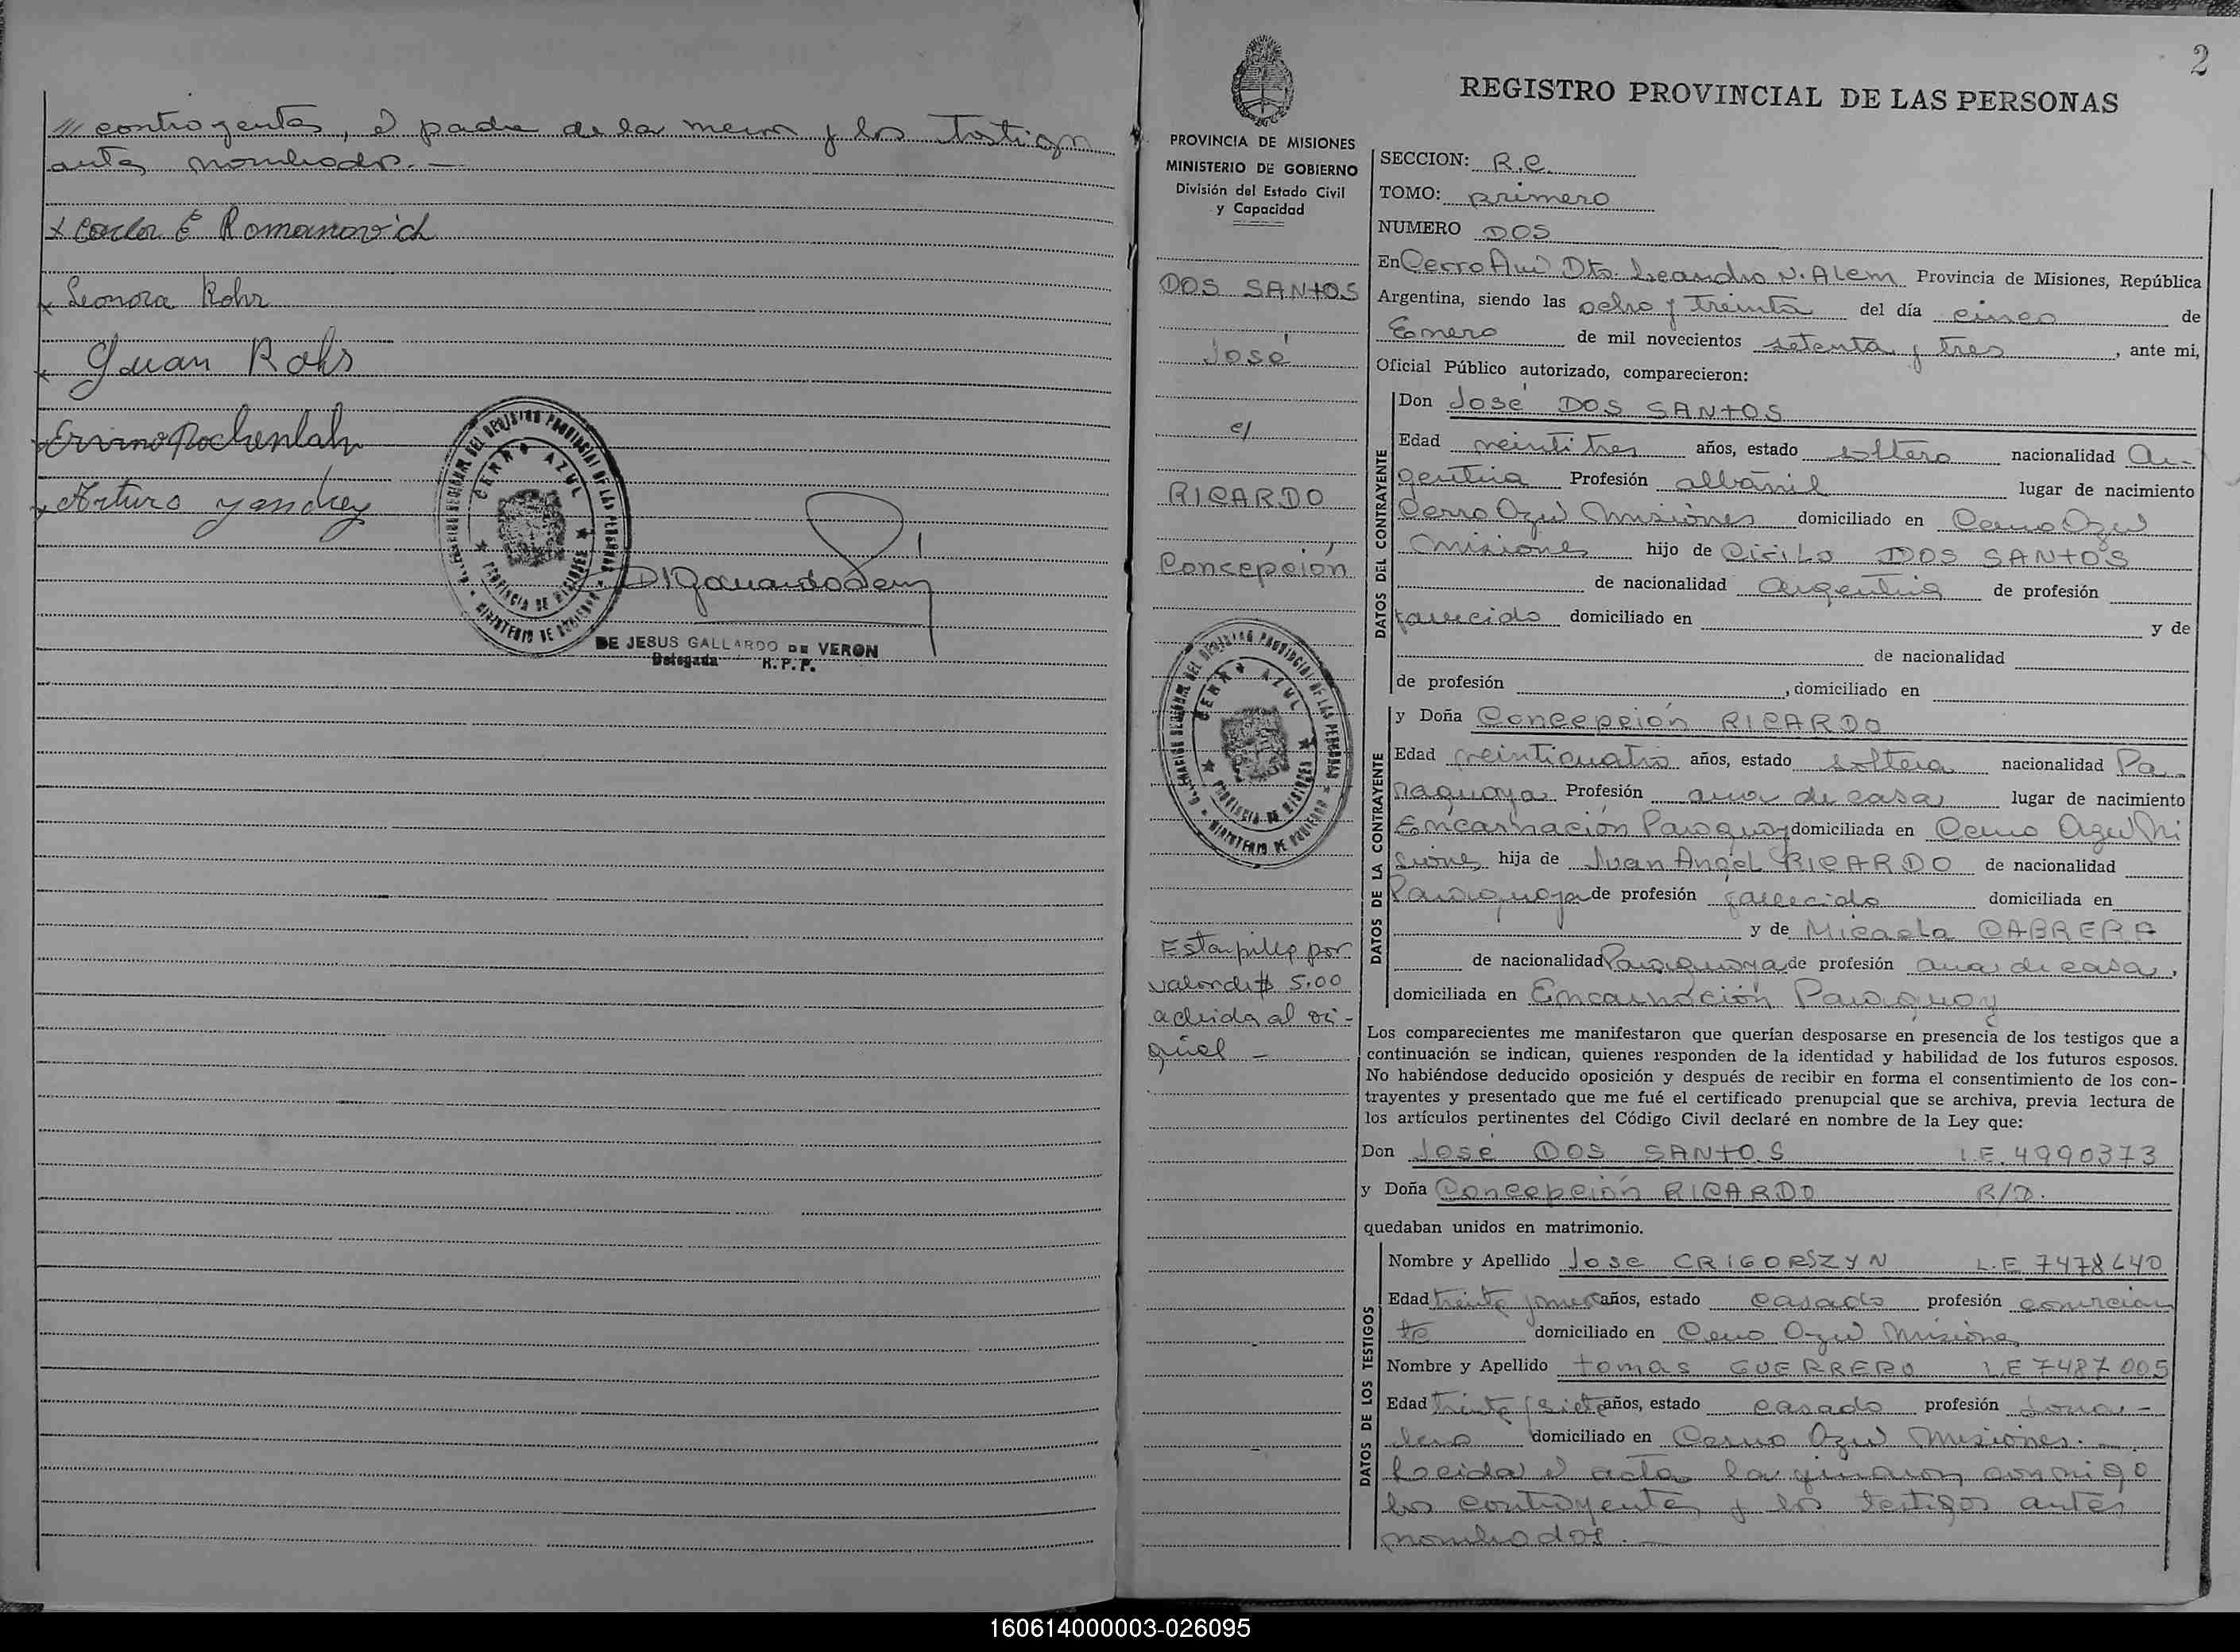 /// contrayentes, el padre de la menor y los testigos
antes nombrados.-
x Carlos E Romanovich
x Leonora Rohr
x Juan Rohr
x Arturo yandrey
REGISTRO PROVINCIAL DE LAS PERSONAS
CERRO AZUL
PROVINCIA DE MISIONES
DE JESUS GALLARDO DE VERON
Delegada R.P.P.
2
PROVINCIA DE MISIONES
MINISTERIO DE GOBIERNO
División del Estado Civil
y Capacidad
DOS SANTOS
José
c/
RICARDO
Concepción
CERRO AZUL
PROVINCIA DE MISIONES
Estampilla por
valor de $ 5.00
adherida al ori-
ginal -
REGISTRO PROVINCIAL DE LAS PERSONAS
SECCION: R.C.
TOMO: primero
NUMERO DOS
En Cerro Azul Dto. Leandro N. Alem Provincia de Misiones, República
Argentina, siendo las ocho y treinta del día cinco de
Enero de mil novecientos setenta y tres, ante mi,
Oficial Público autorizado, comparecieron:
DATOS DEL CONTRAYENTE
Don José DOS SANTOS
Edad veintitres años, estado soltero nacionalidad Ar-
gentina Profesión albañil lugar de nacimiento
Cerro Azul Misiones domiciliado en Cerro Azul
Misiones hijo de Cirilo DOS SANTOS
de nacionalidad argentina de profesión
fallecido domiciliado en y de
de nacionalidad
de profesión , domiciliado en
DATOS DE LA CONTRAYENTE
y Doña Concepción RICARDO
Edad veinticuatro años, estado soltera nacionalidad Pa-
raguaya Profesión ama de casa lugar de nacimiento
Encarnación Paraguay domiciliada en Cerro Azul Mi
siones hija de Juan Angel RICARDO de nacionalidad
Paraguaya de profesión fallecido domiciliada en
y de Micaela CABRERA
de nacionalidad Paraguaya de profesión ama de casa,
domiciliada en Encarnación Paraguay
Los comparecientes me manifestaron que querían desposarse en presencia de los testigos que a
continuación se indican, quienes responden de la identidad y habilidad de los futuros esposos.
No habiéndose deducido oposición y después de recibir en forma el consentimiento de los con-
trayentes y presentado que me fué el certificado prenupcial que se archiva, previa lectura de
los artículos pertinentes del Código Civil declaré en nombre de la Ley que:
Don José DOS SANTOS L.E. 4990373
y Doña Concepción RICARDO
quedaban unidos en matrimonio.
DATOS DE LOS TESTIGOS
Nombre y Apellido Jose CRIGORSZYN L.E 7478640
Edad treinta y nueve años, estado casado profesión comercian
te domiciliado en Cerro Azul Misiones
Nombre y Apellido tomas GUERRERO L.E 7487005
Edad treinta y siete años, estado casado profesión Jorna-
lero domiciliado en Cerro Azul Misiones.-
Leida el acta la firmaron conmigo
los contrayentes y los testigos antes
nombrados.-
160614000003-026095